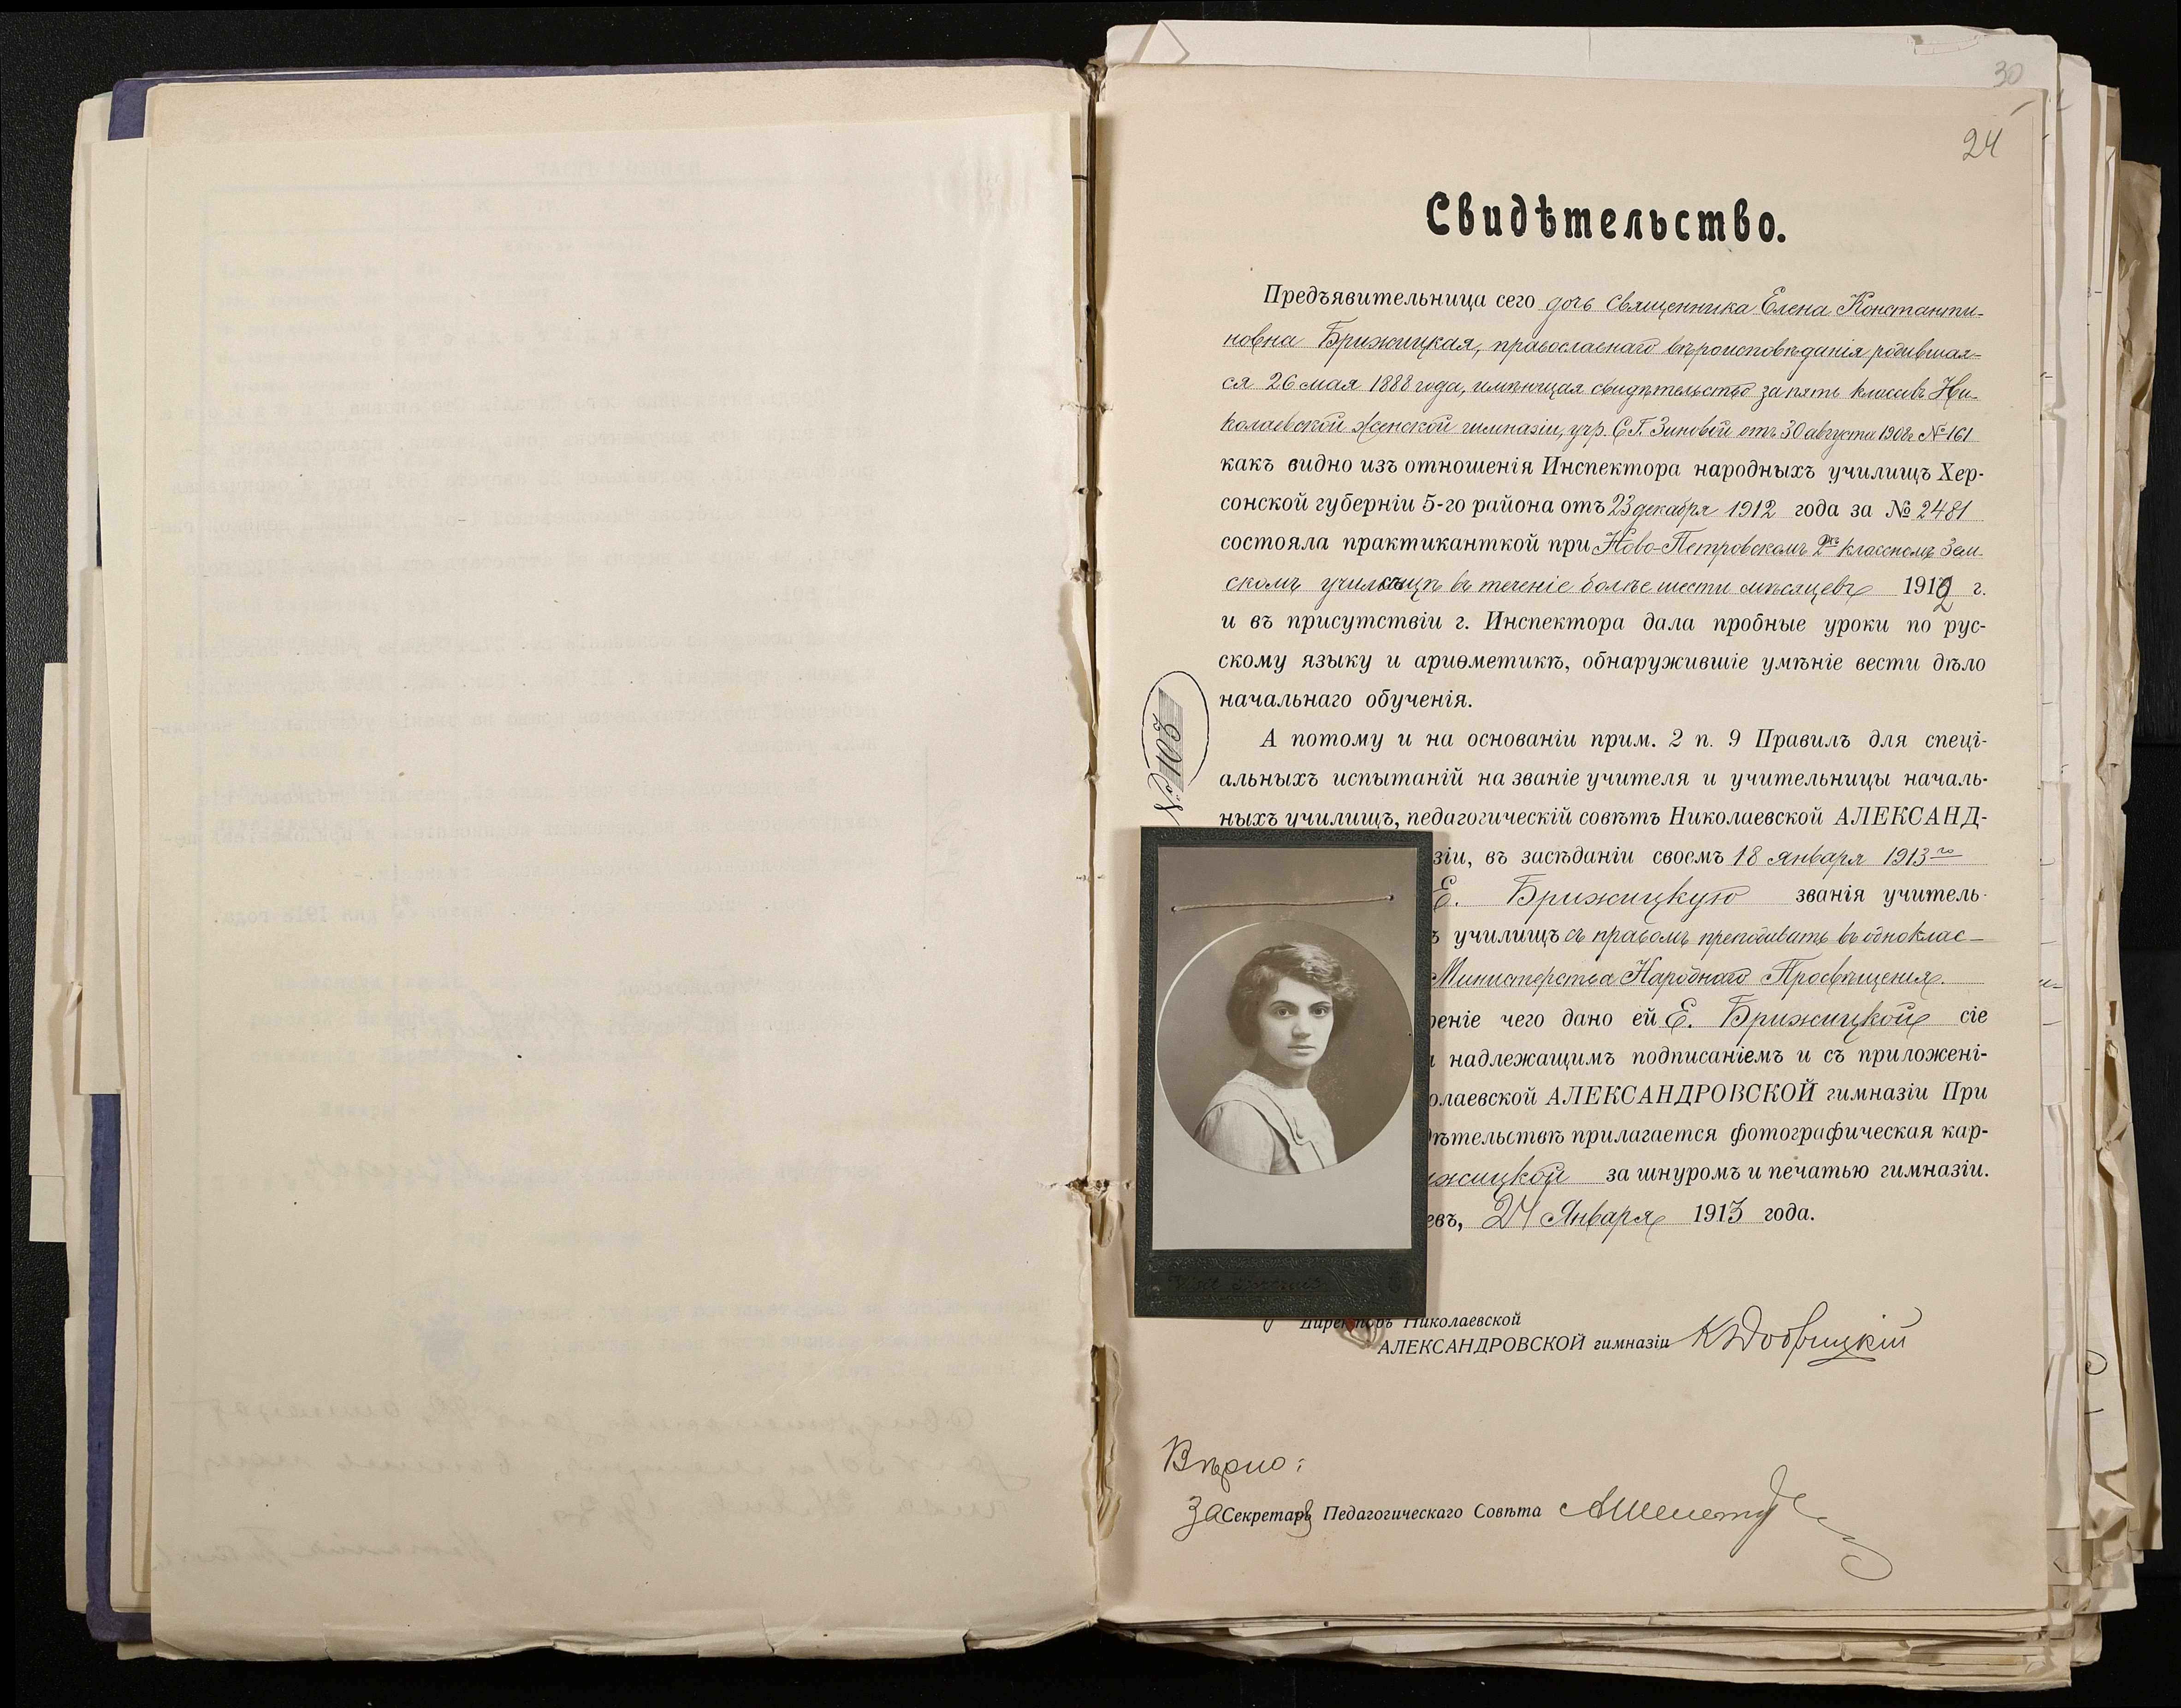 30
24
Свидѣтельство.
Предъявительница сего дочь Священника Елена Константи-
новна Брижицкая, православнаго вѣроисповѣданія родившая-
ся 26 мая 1888 года, имѣющая свидѣтельство за пять классовъ Ни-
колаевской женской гимназіи, учр. С.Г. Зиновей отъ 30 августа 1908г № 161
какъ видно изъ отношенія Инспектора народныхъ училищъ Хер-
сонской губерніи 5-го района отъ 23 декабря 1912 года за № 2481
состояла практиканткой при Ново-Петровскомъ 2хъ классномъ Зем-
скомъ училищѣ въ теченіе болѣе шести мѣсяцевъ 1912 г.
и въ присутствіи г. Инспектора дала пробные уроки по рус-
скому языку и ариѳметикѣ, обнаружившіе умѣніе вести дѣло
начальнаго обученія.
№ 103
А потому и на основаніи прим. 2 п. 9 Правилъ для спеці-
альныхъ испытаній на званіе учителя и учительницы началь-
ныхъ училищъ, педагогическій совѣтъ Николаевской АЛЕКСАНД-
зіи, въ засѣданіи своемъ 18 января 1913 го
Е. Брижицкую званія учитель-
ъ училищъ съ правомъ преподавать въ одноклас-
Министерства Народнаго Просвѣщенія.
реніе чего дано ей Е. Брижицкой сіе
надлежащимъ подписаніемъ и съ приложені-
олаевской АЛЕКСАНДРОВСКОЙ гимназіи При
дѣтельствѣ прилагается фотографическая кар-
ижицкой за шнуромъ и печатью гимназіи.
евъ, 24 Января 1913 года.
Директоръ Николаевской
АЛЕКСАНДРОВСКОЙ гимназіи К Добрицкій
Вѣрно:
За Секретаря Педагогическаго Совѣта